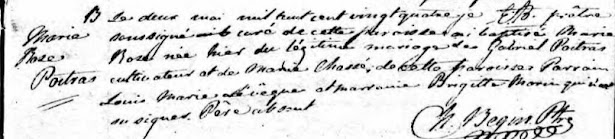 B Le deux mai mil huit cent vingt quatre je prêtre
Marie soussigné curé de cette paroisse ai baptisé Marie
Rose Rose née hier du légitime mariage de Gabriel Poitras
Poitras cultivateur et de Marie Chassé, de cette paroisse Parrain
Louis Marie Lévêque et marraine Brigitte Morin qui n'ont
su signer. Père absent
N. Begin Ptre